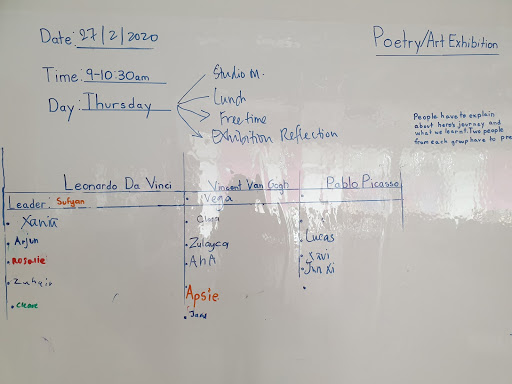 Date: 27/2/2020
Poetry/Art Exhibition
Time: 9-10:30am
Day: Thursday
Studio M.
Lunch
Free time
Exhibition Reflection
People have to explain
about hero's journey and
what we learnt. Two people
from each group have to pre
Leonardo Da Vinci
Vincent Van Gogh
Pablo Picasso
Leader: Sufyan
Vega
Xania
Arjun
Zulayca
Lucas
Rosalie
AnA
Xavi
Jun Xi
Zuhair
Apsie
Jane